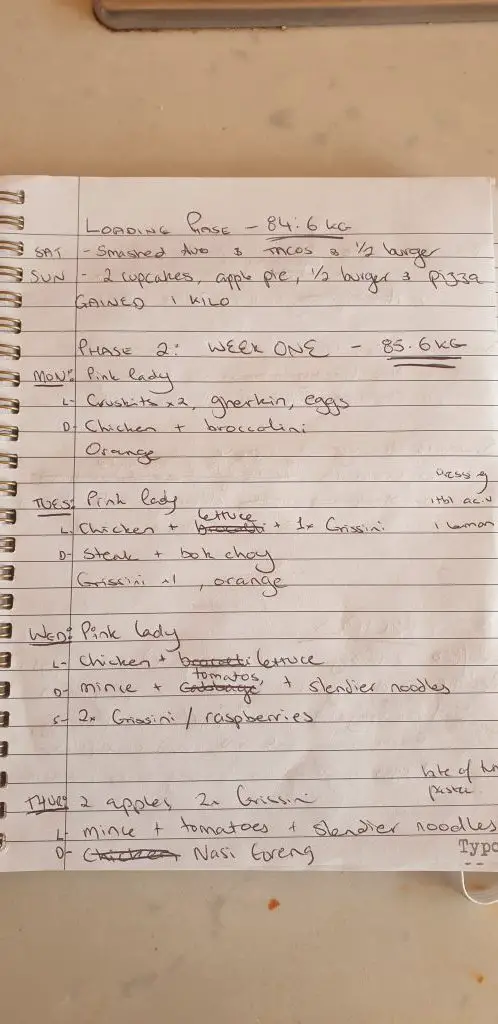 LOADING PHASE - 84.6 KG
SAT - Smashed Avo & TACOS & 1/2 burger
SUN - 2 cupcakes, apple pie, 1/2 burger & pizza
GAINED 1 KILO
PHASE 2: WEEK ONE - 85.6 KG
MON: Pink lady
L- Cruskits x2, gherkin, eggs
D- Chicken + broccolini
Orange
TUES: Pink lady
1 tbl ac.v
lettuce
L- Chicken + + 1x Grissini 1 lemon
D- Steak + bok choy
Grissini x1, orange
WED: Pink lady
L- Chicken + lettuce
tomatos,
D- mince + cabbage + slendier noodles
S- 2x Grissini / raspberries
bite of
THUR: 2 apples, 2x Grissini
L- mince + tomatoes + slendier noodles
D- Chicken Nasi Goreng
Typo